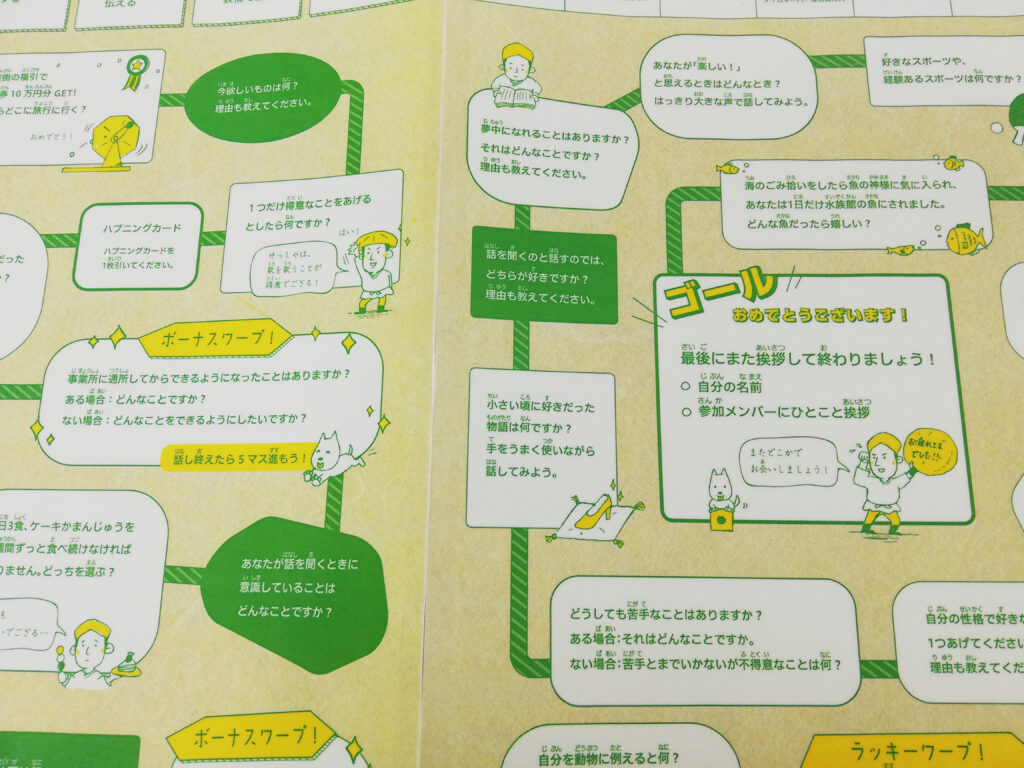 伝える
街の福引で
券10万円分GET!
どこに旅行に行く？
おめでとう！
今欲しいものは何？
理由も教えてください。
ハプニングカード
ハプニングカードを
1枚引いてください。
1つだけ得意なことをあげる
としたら何ですか？
はい！
せっしゃは、
歌を歌うことが
得意でござる！
だった
？
ボーナスワープ！
事業所に通所してからできるようになったことはありますか？
ある場合：どんなことですか？
ない場合：どんなことをできるようにしたいですか？
話し終えたら5マス進もう！
日3食、ケーキかまんじゅうを
週間ずっと食べ続けなければ
りません。どっちを選ぶ？
でござる…
あなたが話を聞くときに
意識していることは
どんなことですか？
ボーナスワープ！
夢中になれることはありますか？
それはどんなことですか？
理由も教えてください。
あなたが「楽しい！」
と思えるときはどんなとき？
はっきり大きな声で話してみよう。
好きなスポーツや、
経験あるスポーツは何ですか？
海のごみ拾いをしたら魚の神様に気に入られ、
あなたは1日だけ水族館の魚にされました。
どんな魚だったら嬉しい？
話を聞くのと話すのでは、
どちらが好きですか？
理由も教えてください。
小さい頃に好きだった
物語は何ですか？
手をうまく使いながら
話してみよう。
ゴール
おめでとうございます！
最後にまた挨拶して終わりましょう！
○ 自分の名前
○ 参加メンバーにひとこと挨拶
またどこかで
お会いしましょう！
お疲れさま
でした！！
どうしても苦手なことはありますか？
ある場合：それはどんなことですか。
ない場合：苦手とまでいかないが不得意なことは何？
自分の性格で好きな
1つあげてください
理由も教えてくだ
自分を動物に例えると何？
ラッキーワープ！